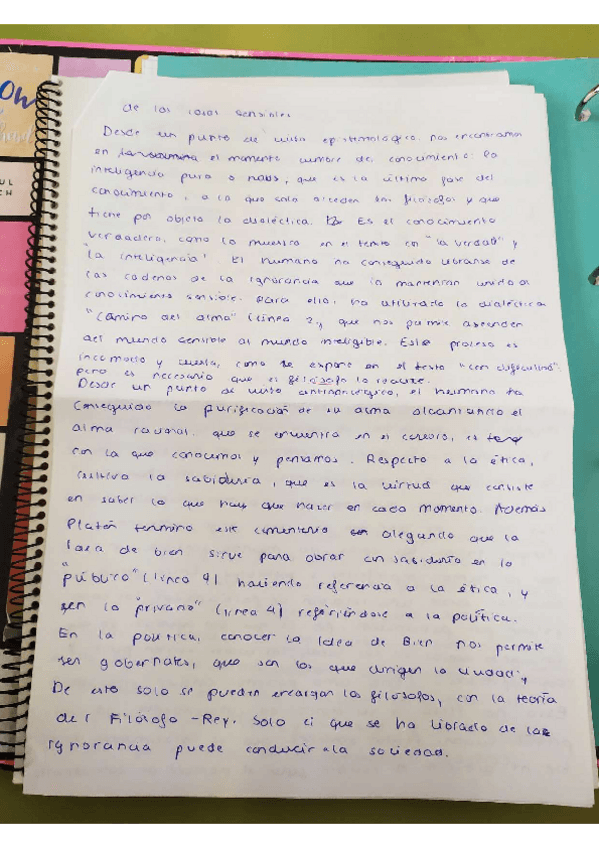 de las cosas sensibles
Desde un punto de vista epistemológico nos encontramos
en el momento cumbre del conocimiento: la
inteligencia pura o nous, que es la última fase del
conocimiento, a la que solo acceden los filósofos y que
tiene por objeto la dialéctica. Es el conocimiento
verdadero, como lo muestra en el texto con "la verdad" y
"la inteligencia". El humano ha conseguido librarse de
las cadenas de la ignorancia que lo mantenían unido al
conocimiento sensible. Para ello, ha utilizado la dialéctica
"camino del alma" (línea 2), que nos permite ascender
del mundo sensible al mundo inteligible. Este proceso es
incomodo y cuesta, como se expone en el texto "con dificultad".
pero es necesario que el filósofo lo realice.
Desde un punto de vista antropológico, el humano ha
conseguido la purificación de su alma alcanzando el
alma racional que se encuentra en el cerebro, es
con la que conocemos y pensamos. Respecto a la ética,
cultiva la sabiduría, que es la virtud que consiste
en saber lo que hay que hacer en cada momento. Además
Platón termina este comentario alegando que la
Idea de bien sirve para obrar con sabiduría en lo
"público" (línea 4) haciendo referencia a la ética, y
en lo "privado" (línea 4) refiriéndose a la política.
En la política, conocer la Idea de Bien nos permite
ser gobernates, que son los que dirigen la ciudad;
De esto solo se pueden encargar los filósofos, con la teoría
del Filósofo-Rey. Solo el que se ha librado de las
ignorancia puede conducir a la sociedad.